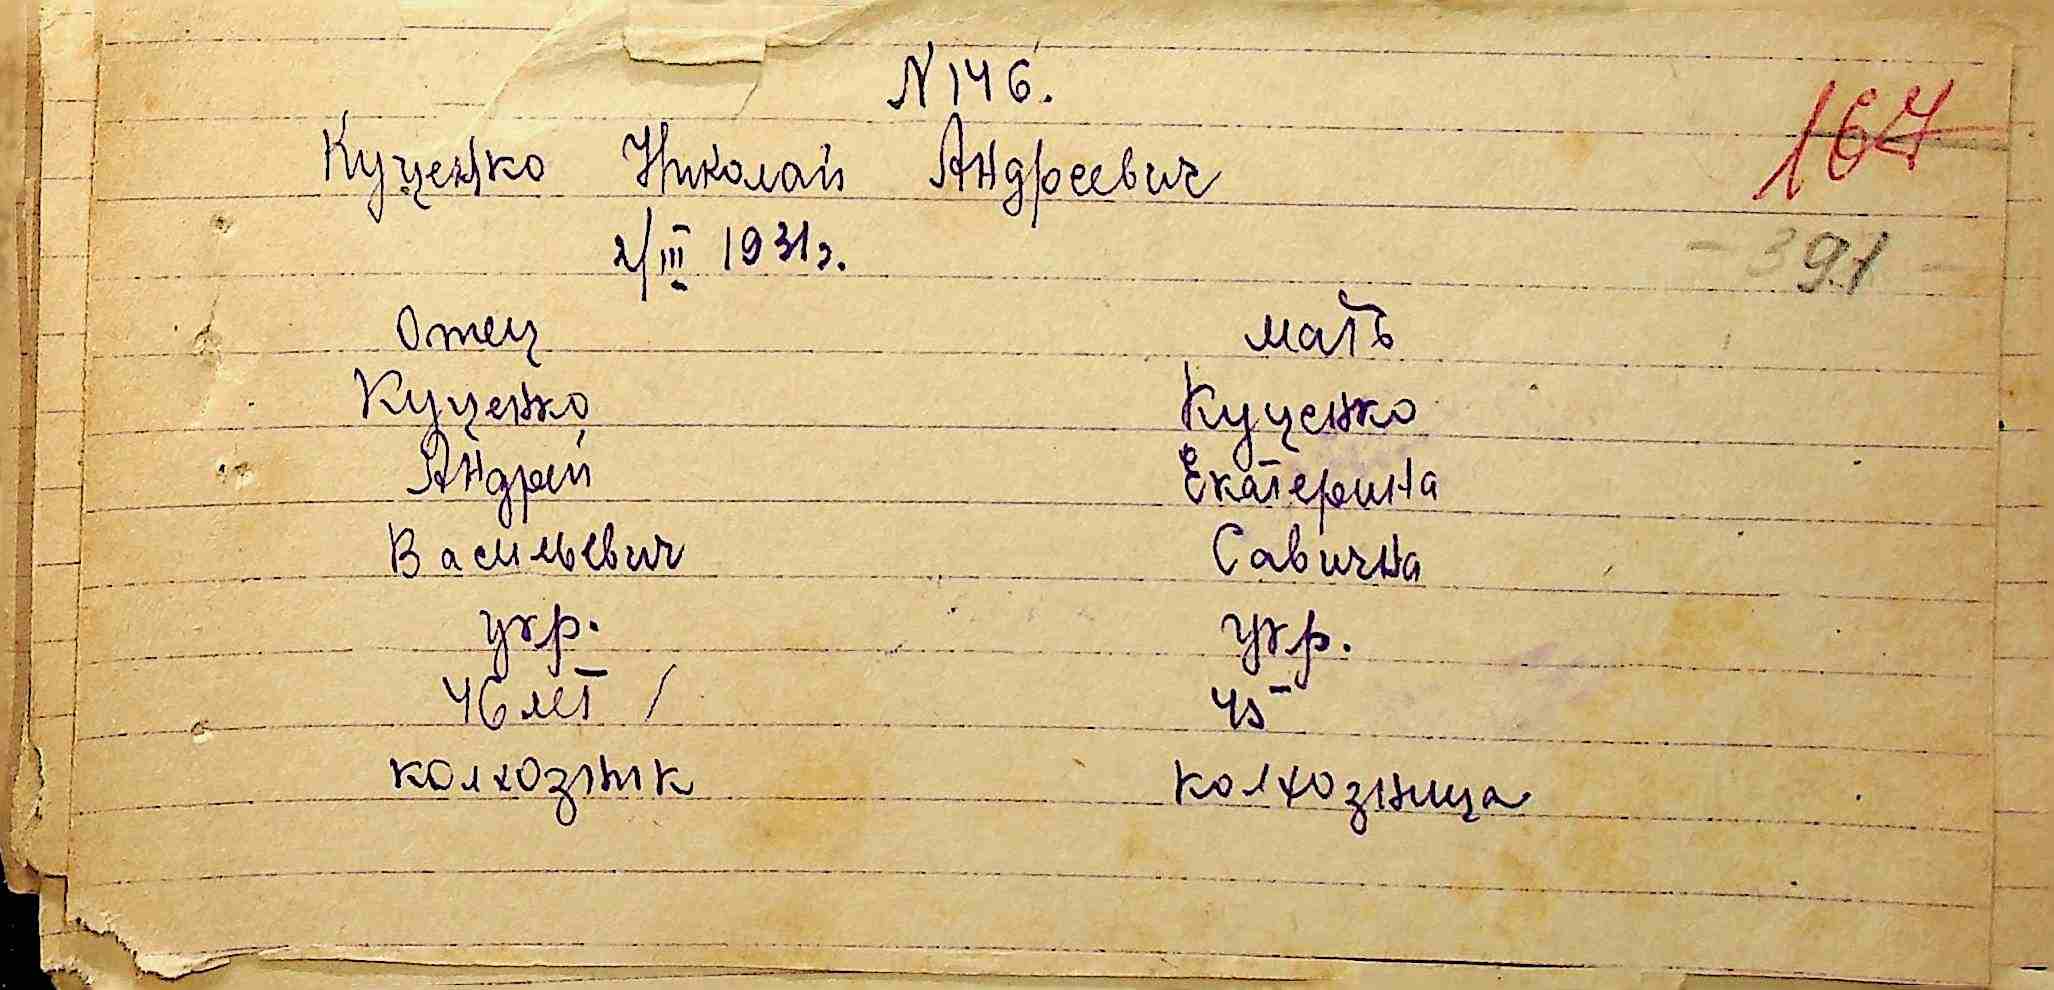 N 146.
167
Куценко Николай Андреевич
2/III 1931г.
- 391 -
Отец мать
Куценко Куценко
Андрей Екатерина
Васильевич Савична
укр. укр.
46 лет / 45
колхозник колхозница